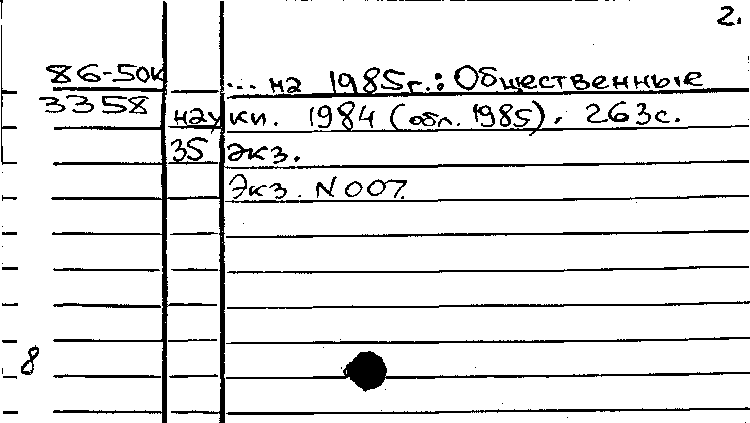 2.
86-50к ... на 1985г.: Общественные
3358 науки. 1984 (обл. 1985). 263с.
35 экз.
Экз. N007.
8